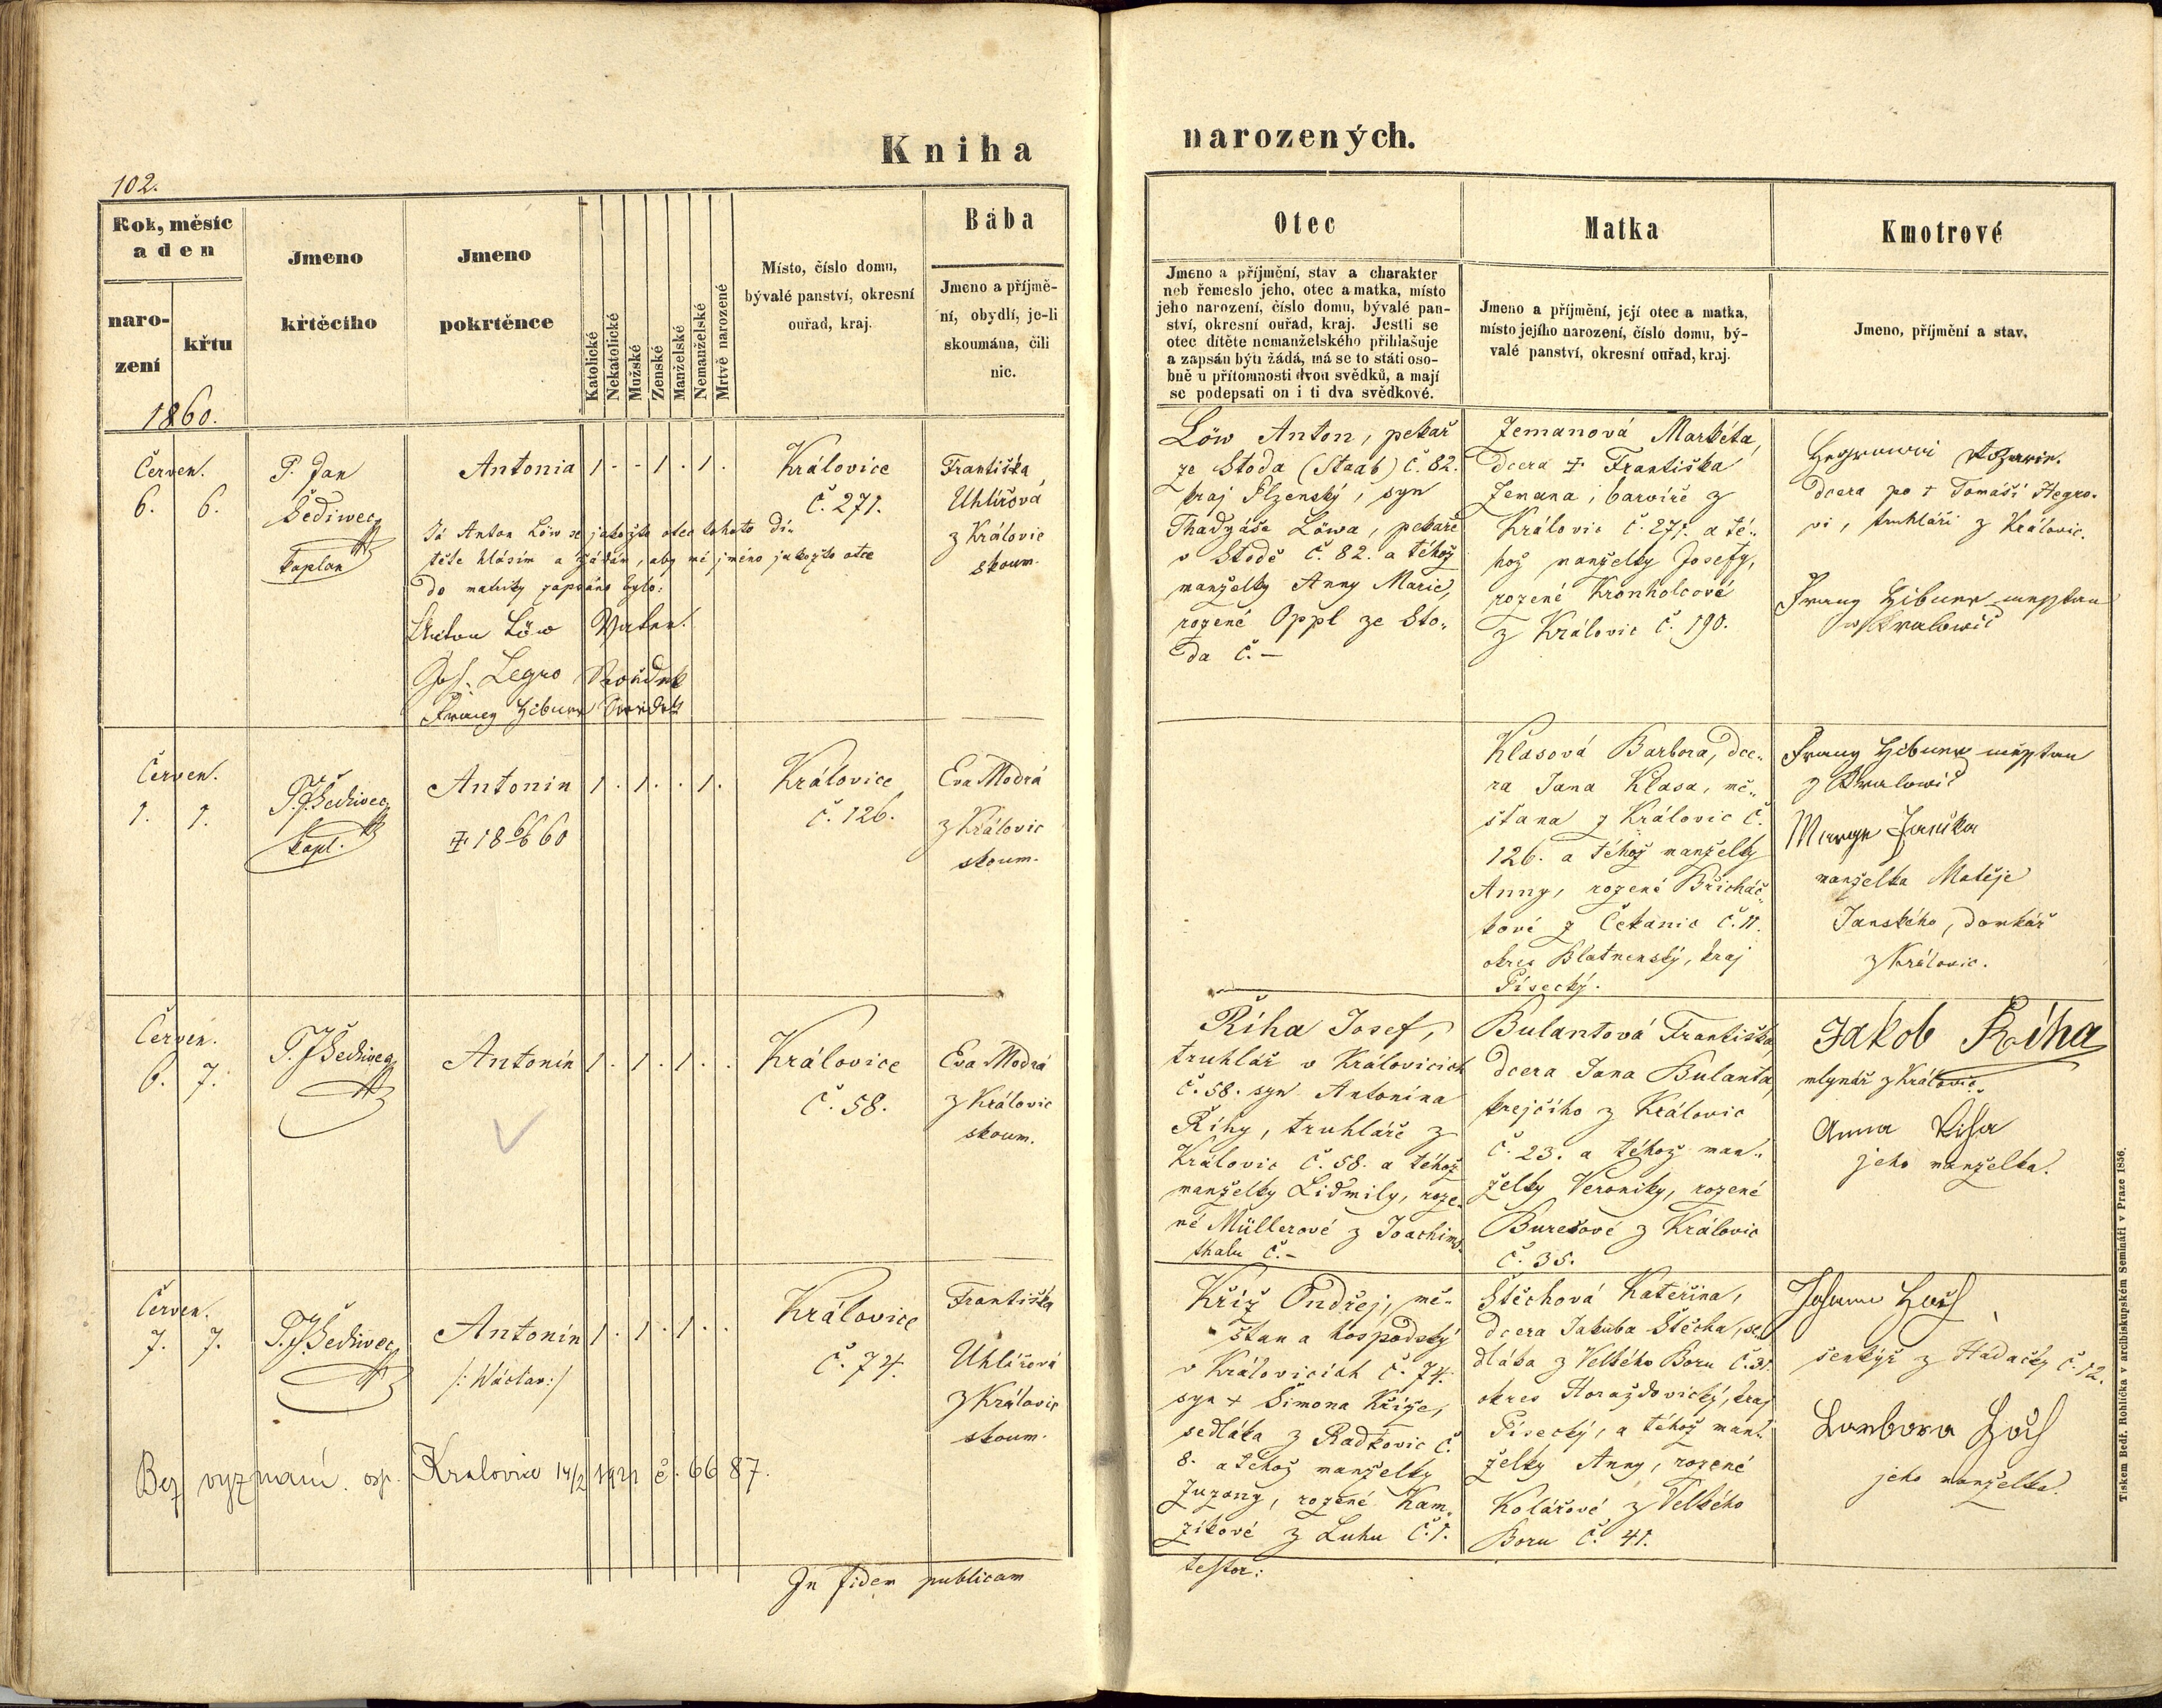 Kniha
narozených.
102.
Rok, měsíc
a den
naro-
zení
křtu
1860.
Jmeno
křtěcího
Jmeno
pokrtěnce
Katolické
Nekatolické
Mužské
Ženské
Manželské
Nemanželské
Mrtvě narozené
Místo, číslo domu,
bývalé panství, okresní
ouřad, kraj.
Bába
Jmeno a příjmě-
ní, obydlí, je-li
skoumána, čili
nic.
Otec
Jmeno a příjmění, stav a charakter
neb řemeslo jeho, otec a matka, místo
jeho narození, číslo domu, bývalé pan-
ství, okresní ouřad, kraj. Jestli se
otec dítěte nemanželského přihlašuje
a zapsán býti žádá, má se to státi oso-
bně u přítomnosti dvou svědků, a mají
se podepsati on i ti dva svědkové.
Matka
Jmeno a příjmění, její otec a matka,
místo jejího narození, číslo domu, bý-
valé panství, okresní ouřad, kraj.
Kmotrové
Jmeno, příjmění a stav.
Červen.
6. 6.
P. Jan
Šediwec
kaplan
Antonia 1 - - 1 . 1 .
Já Anton Löw se jakožto otec tohoto dí-
těte hlásím a žádám, aby mé jméno jakožto otce
do matriky zapsáno bylo:
Anton Löw Vater.
Jos. Legro Svědek
Franz Hibner Svědek
Královice
č. 271.
Františka
Uhlířová
z Královic
skoum.
Löw Anton, pekař
ze Stoda (Staab) č. 82.
kraj Plzenský, syn
Thadyáša Löwa, pekaře
v Stodě č. 82. a téhož
manželky Anny Marie,
rozené Oppl ze Sto-
da č. —
Zemanová Markéta,
dcera + Františka
Zemana, barvíře z
Královic č. 271. a té-
hož manželky Josefy,
rozené Kronholcové
z Královic č. 190.
dcera po + Tomáši Hegro-
vi, truhláři z Královic.
Franz Hibner messtan
w Kralowic
Červen.
1. 1.
P. J. Šediwec
kapl.
Antonin 1 . 1 . . 1 .
+ 18 6/6 60
Královice
č. 126.
Eva Modrá
z Královic
skoum.
Klasová Barbora, dce-
ra Jana Klasa, mě-
štana z Královic č.
126. a téhož manželky
Anny, rozené Břicháč-
kové z Čekanic č. 11.
okres Blatnenský, kraj
Písecký.
Franz Hibner messtan
z Kralowic
manželka Matěje
Janského, domkář
z Královic.
Červen.
6. 7.
P. J. Šediwec
Antonín 1 . 1 . 1 . .
Královice
č. 58.
Eva Modrá
z Královic
skoum.
Říha Josef,
truhlář v Královicích
č. 58. syn Antonína
Říhy, truhláře z
Královic č. 58. a téhož
manželky Lidmily, roze-
né Müllerové z Joachims-
thalu č. –
Bulantová Františka,
dcera Jana Bulanta,
krejčího z Královic
č. 23. a téhož man-
želky Veroniky, rozené
Burešové z Královic
č. 35.
Jakob Říha
mlynář z Královic
Anna Říha
jeho manželka.
Červen.
7. 7.
P. J. Šediwec
Antonín 1 . 1 . 1 . .
/: Wáclav :/
Královice
č. 74.
Františka
Uhlířová
z Královic
skoum.
Bez vyznání. osp. Kralovice 14/2 1921 č. 6687.
Kříž Ondřej, mě-
štan a hospodský
v Královicích č. 74.
syn + Šimona Kříže,
sedláka z Radkovic č.
8. a téhož manželky
Zuzany, rozené Kam-
zíkové z Luhu č. 1.
Štěchová Kateřina,
dcera Jakuba Štěcha, se-
dláka z Velkého Boru č. 31.
okres Horažďovický, kraj
Písecký, a téhož man-
želky Anny, rozené
Kolářové z Velkého
Boru č. 41.
šenkýř z Hádačky č. 12.
jeho manželka.
In fidem publicam
testor:
Tiskem Bedř. Rohlíčka v arcibiskupském Semináři v Praze 1856.